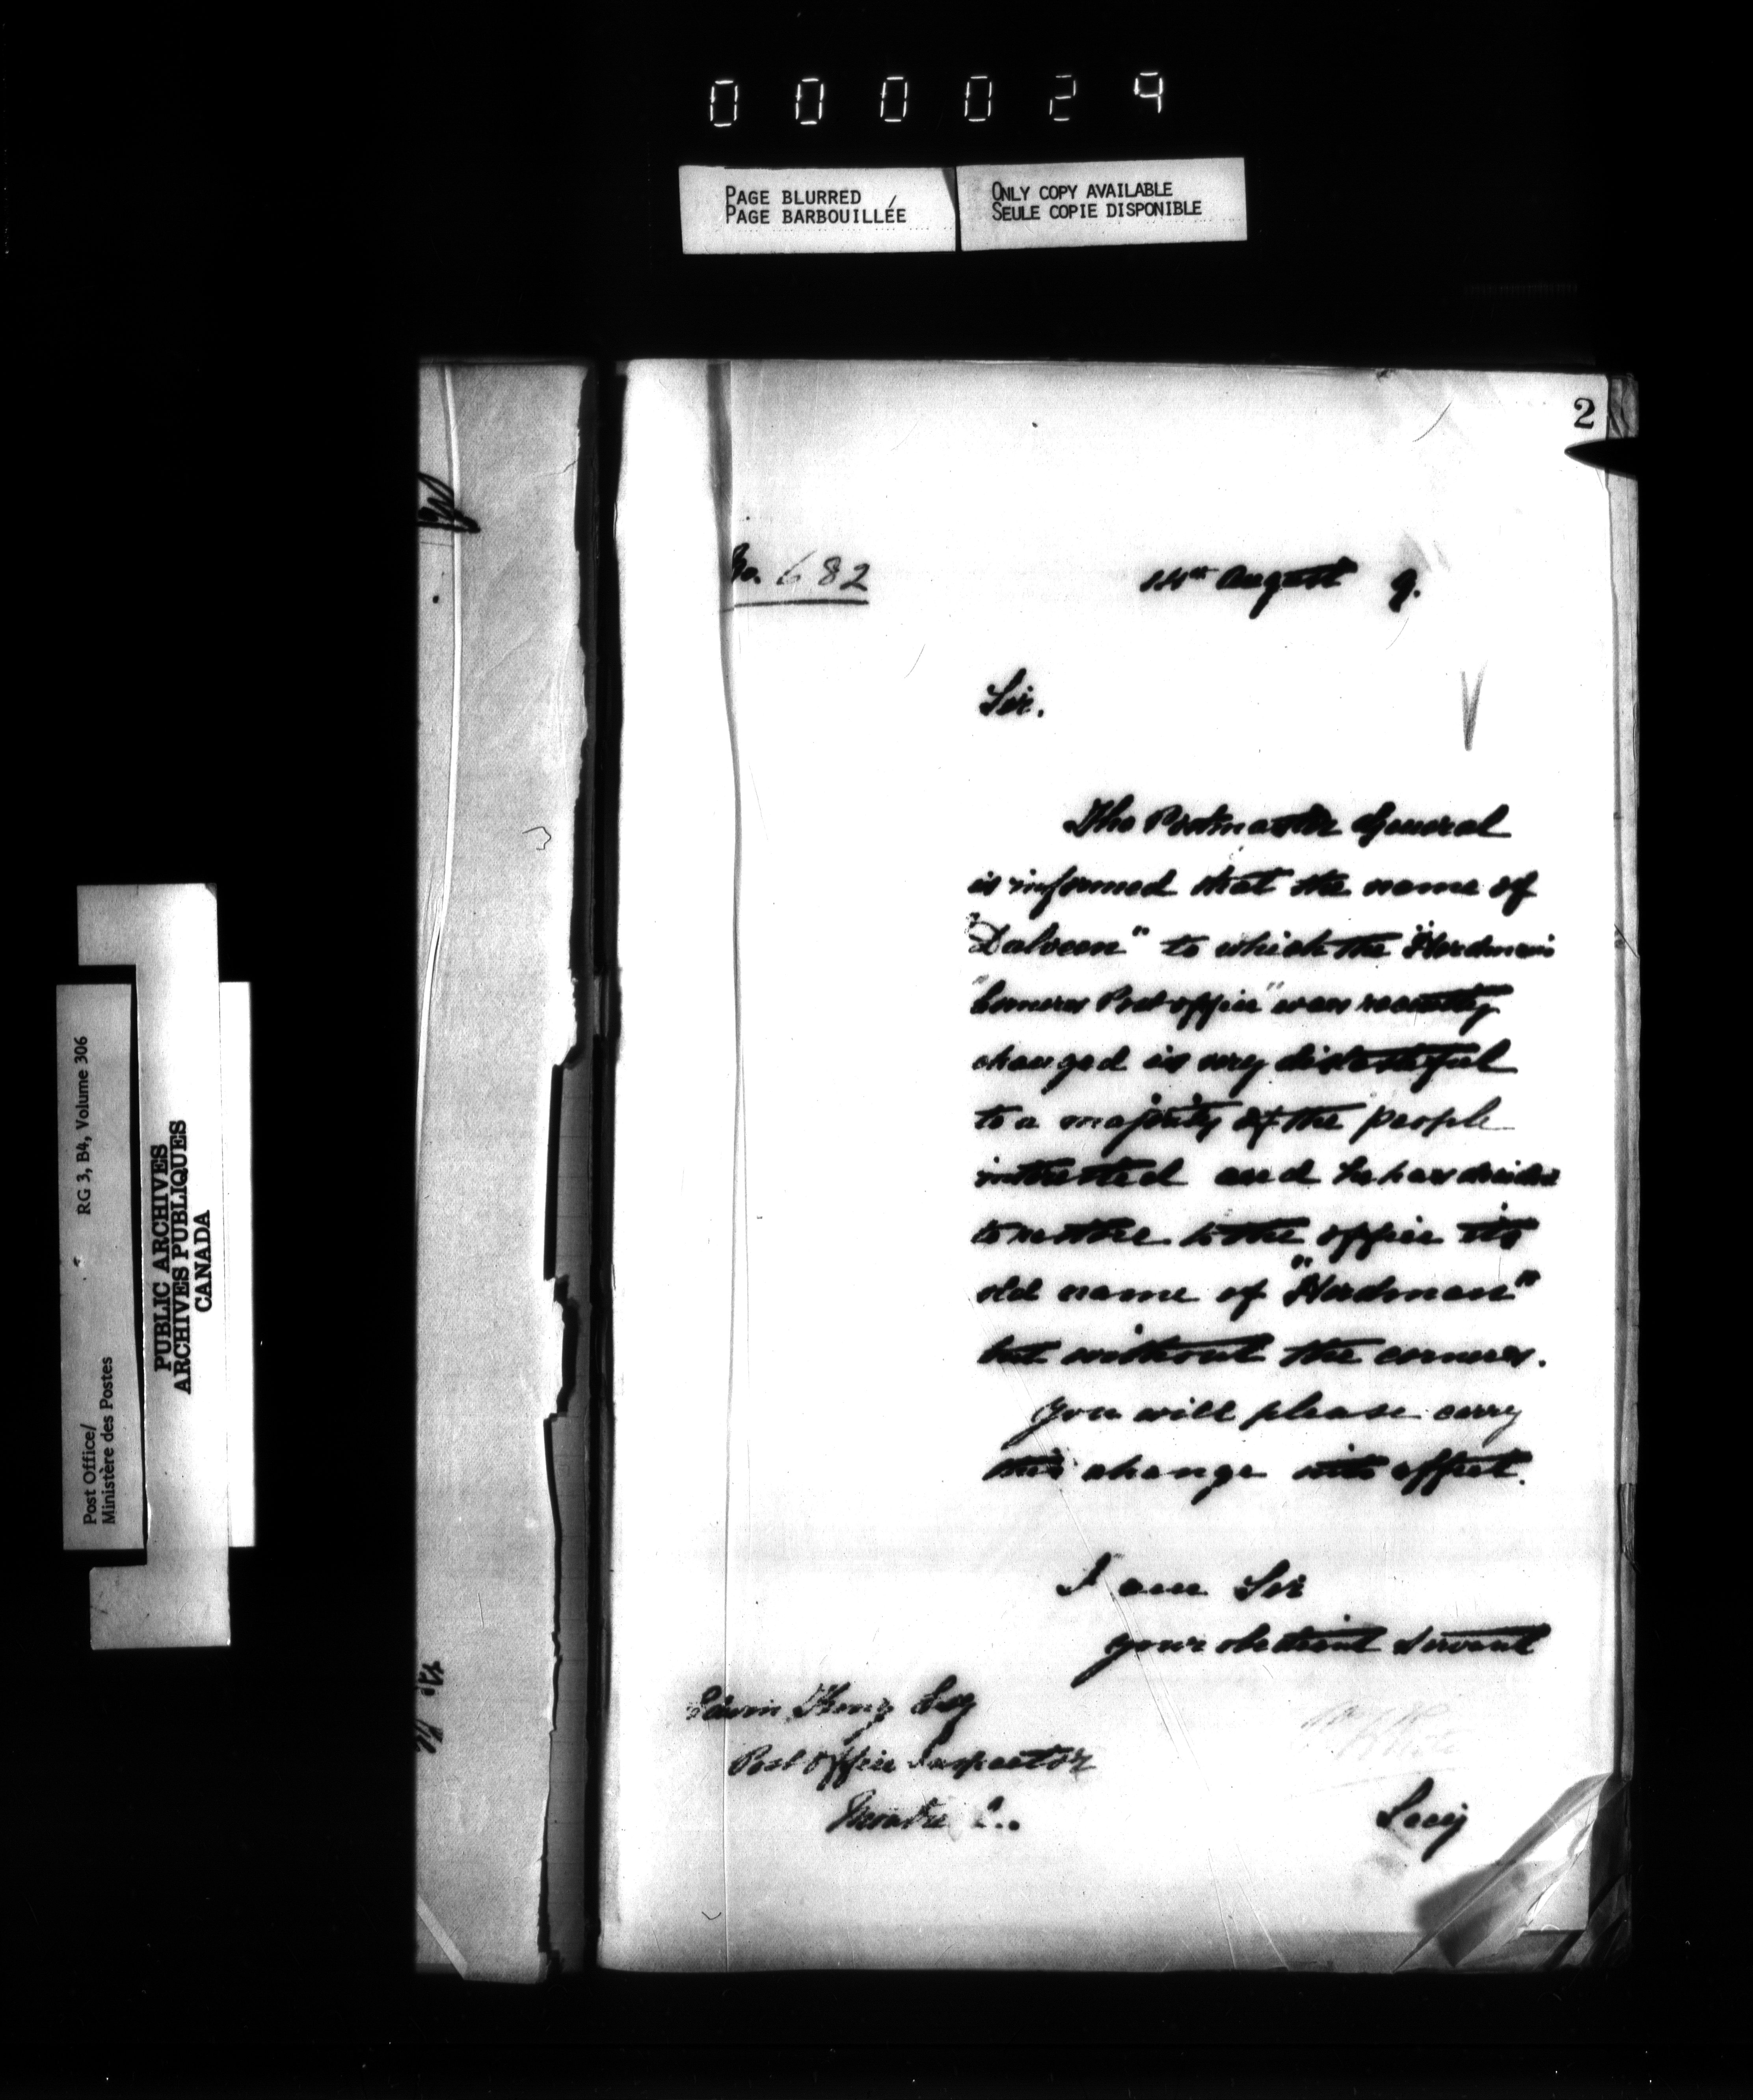 000029
PAGE BLURRED
PAGE BARBOUILLÉE
ONLY COPY AVAILABLE
SEULE COPIE DISPONIBLE
2
No. 682
14th August 9.
Sir.
The Postmaster General
is informed that the name of
"Dalveen" to which the "Herdman's
"Corners Post office" was recently
changed is very distasteful
to a majority of the people
interested and he has decided
to restore to the office its
old name of "Herdman"
but without the corners.
You will please carry
this change into effect.
I am Sir
Your obedient Servant
Edwin King Esq
Post Office Inspector
Secy
Post Office/
Ministère des Postes
RG 3, B4, Volume 306
PUBLIC ARCHIVES
ARCHIVES PUBLIQUES
CANADA